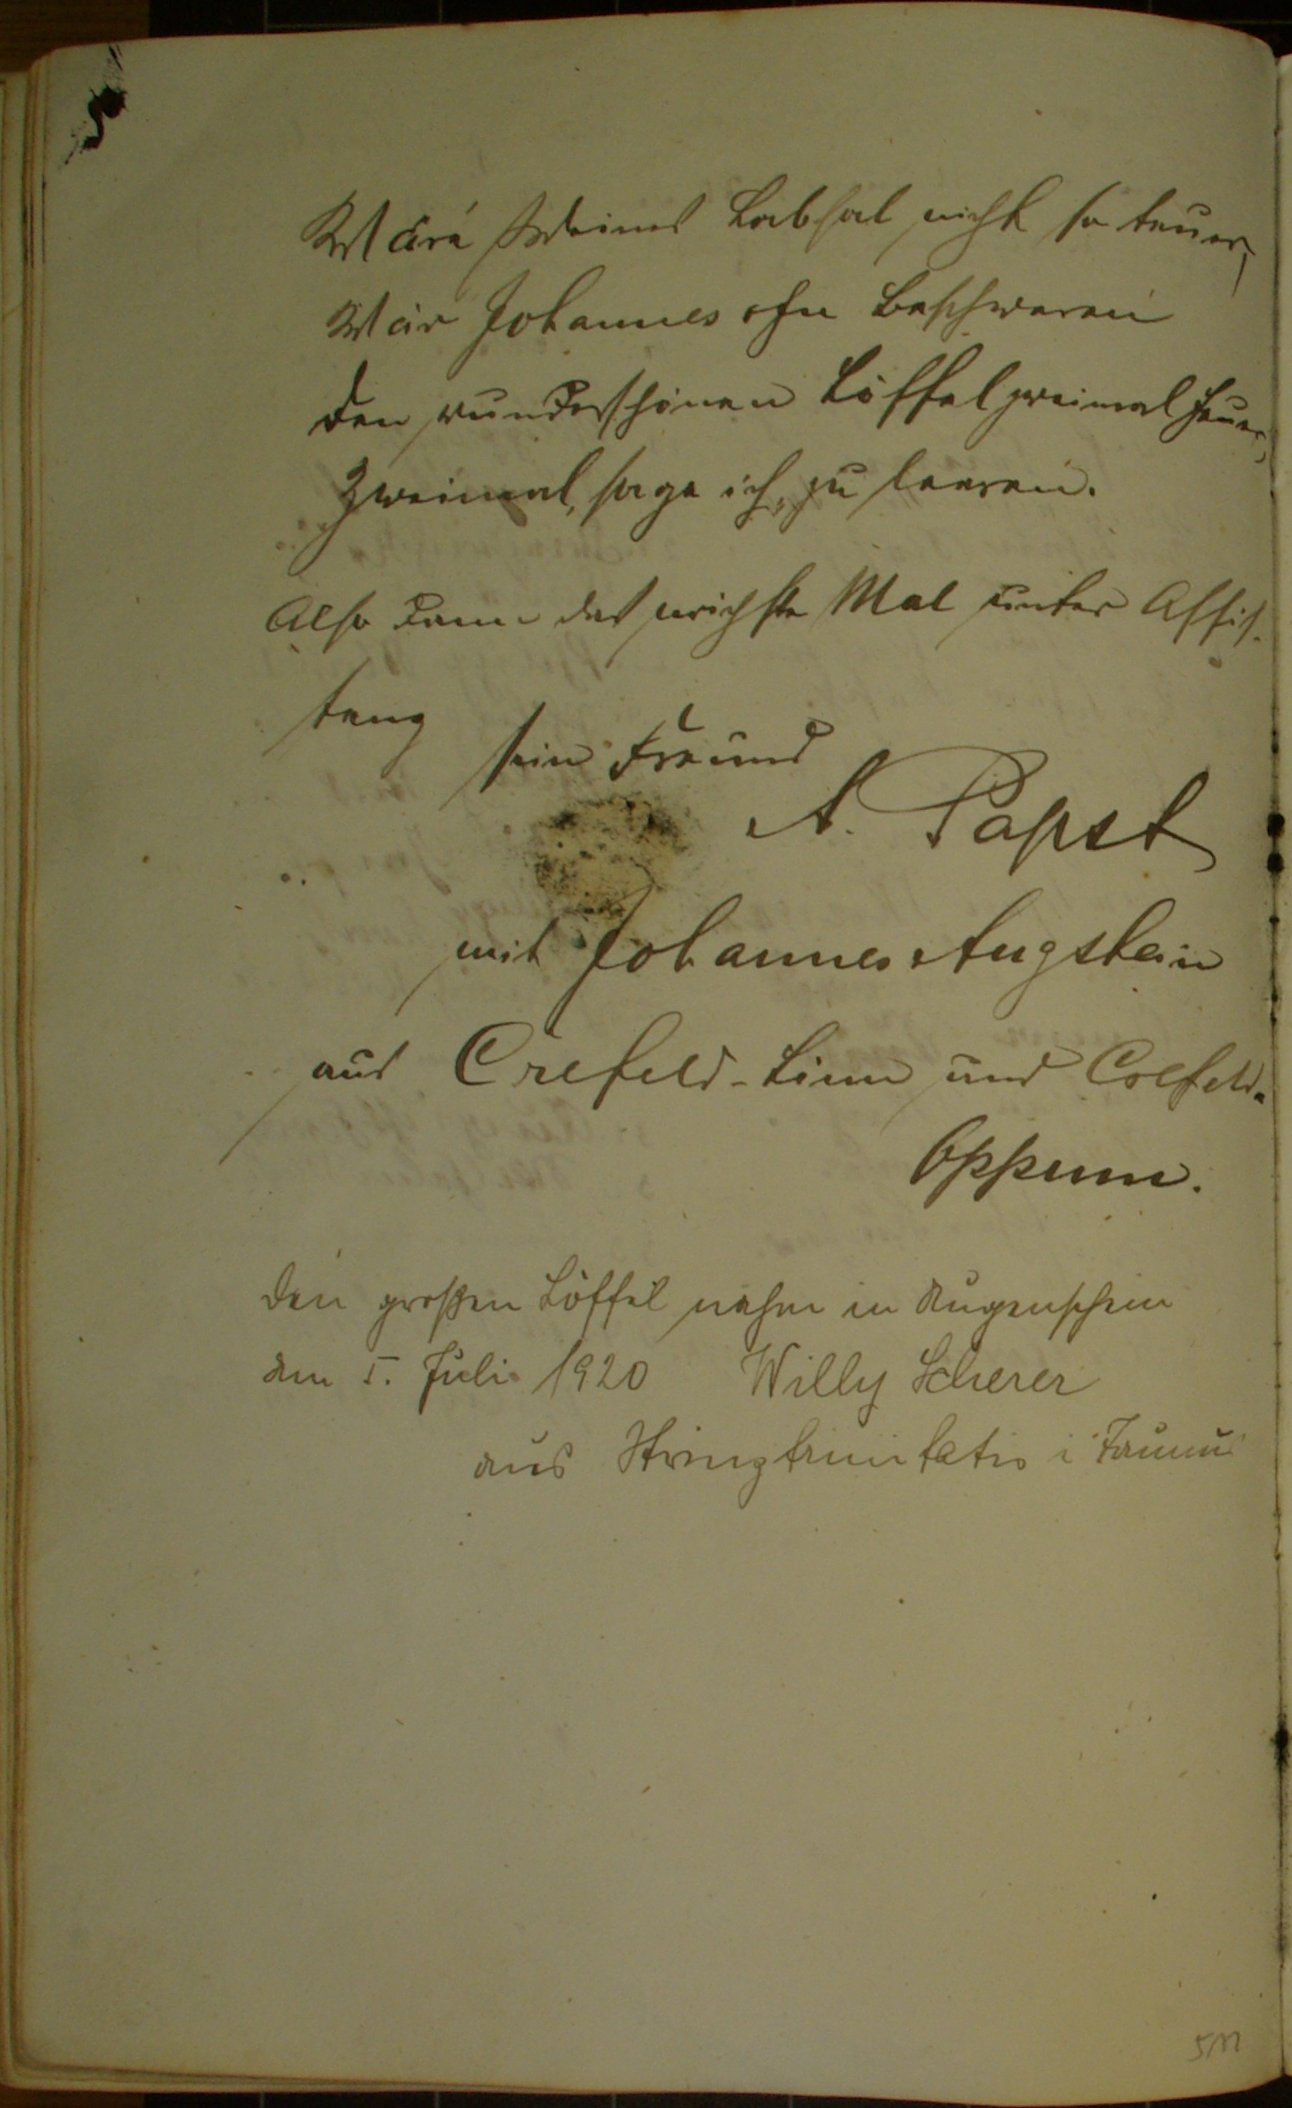 Wäre Weines Labsal nicht so teuer,
Wär Johannes ohn Beschweren
Den wunderschönen Löffel zweimal heuer,
Zweimal, sage ich, zu leeren.
Also dann das nächste Mal unter Assis-
tenz
sein Freund
A. Papst
mit Johannes Augstein
aus Crefeld-Linn und Crefeld-
Oppum.
Den großen Löffel nahm in Augenschein
am 5. Juli 1920 Willy Scherer
aus Stringtrinitatis i Taunus